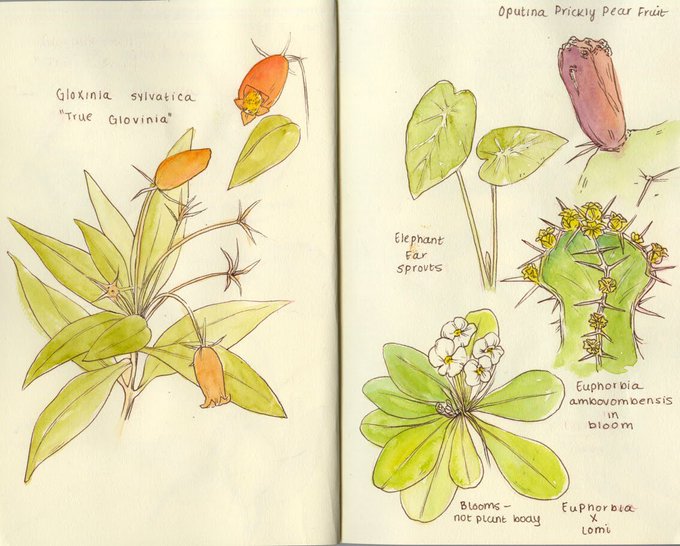 Gloxinia sylvatica
"True Glovinia"
Oputina Prickly Pear Fruit
Elephant
Ear
sprouts
Euphorbia
ambovombensis
in
bloom
Blooms –
not plant body
Euphorbia
X
Lomi